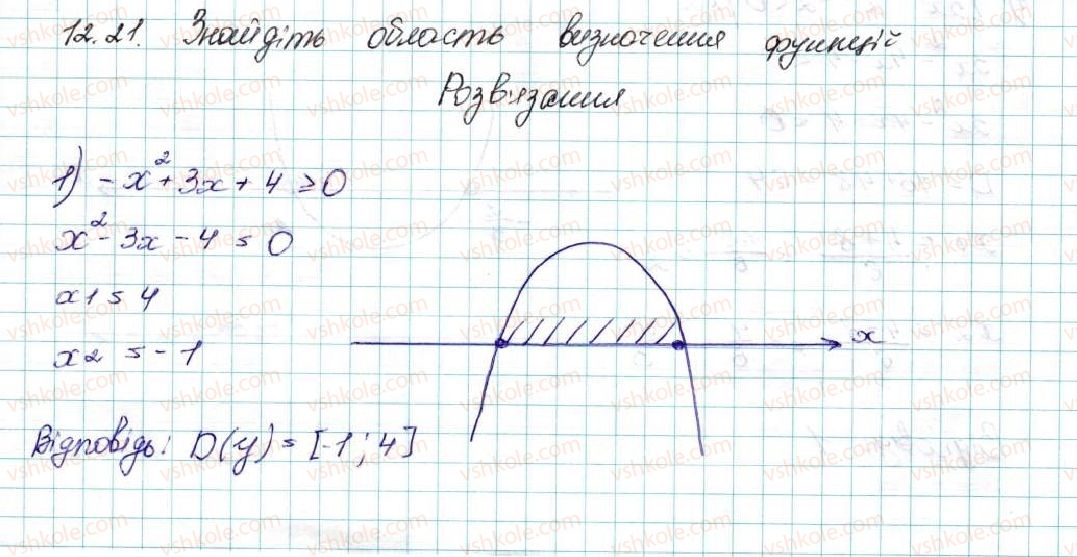 12.21. Знайдіть область визначення функцій
Розвязання
1) -x²+3x+4≥0
x²-3x-4=0
x1=4
x2=-1
x
Відповідь: D(y)=[-1;4]